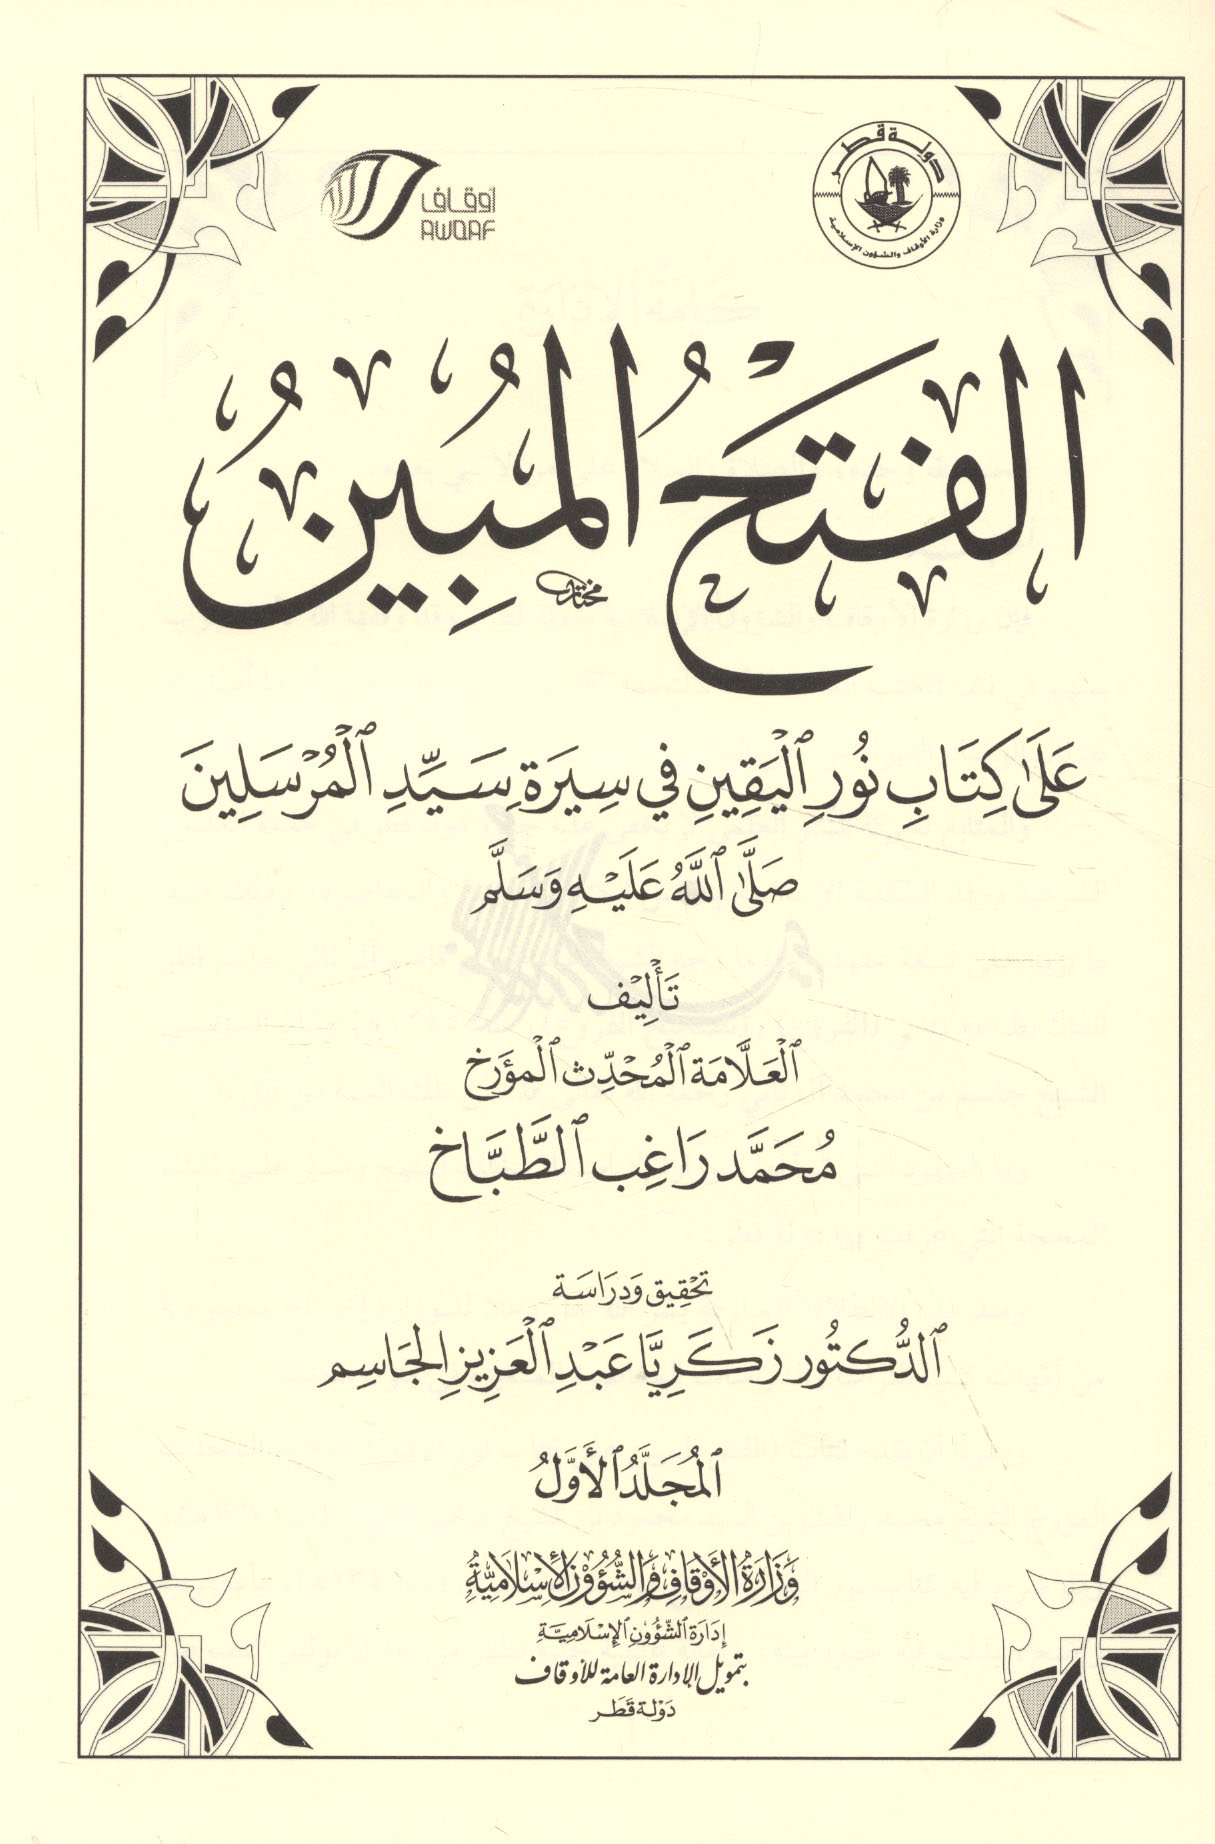 دولة قطر
وزارة الأوقاف والشؤون الإسلامية
أوقاف
AWQAF
الفَتْحُ المُبِينُ
مختار
عَلَىٰ كِتَابِ نُورِ ٱلْيَقِينِ فِي سِيرَةِ سَيِّدِ ٱلْمُرْسَلِينَ
صَلَّى ٱللَّهُ عَلَيْهِ وَسَلَّم
تَأْلِيْف
ٱلْعَلَّامَة ٱلْمُحْدِّث ٱلْمؤَرخ
مُحَمَّد رَاغِب ٱلطَّبَّاخ
تحْقِيق وَدرَاسَة
ٱلدُّكتُور زَكَرِيَّا عَبْدِ ٱلْعَزِيزِ الجَاسِم
ٱلمُجَلَّدُ ٱلأَوَّلُ
وَزَارَةُ الأَوْقَافِ وَالشُّؤُونِ الإِسْلَامِيَّةِ
إدَارَة الشُّؤُونِ الإِسْلَامِيَّةِ
بتمويل الإدارة العامة للأوقاف
دَوْلَة قَطَر